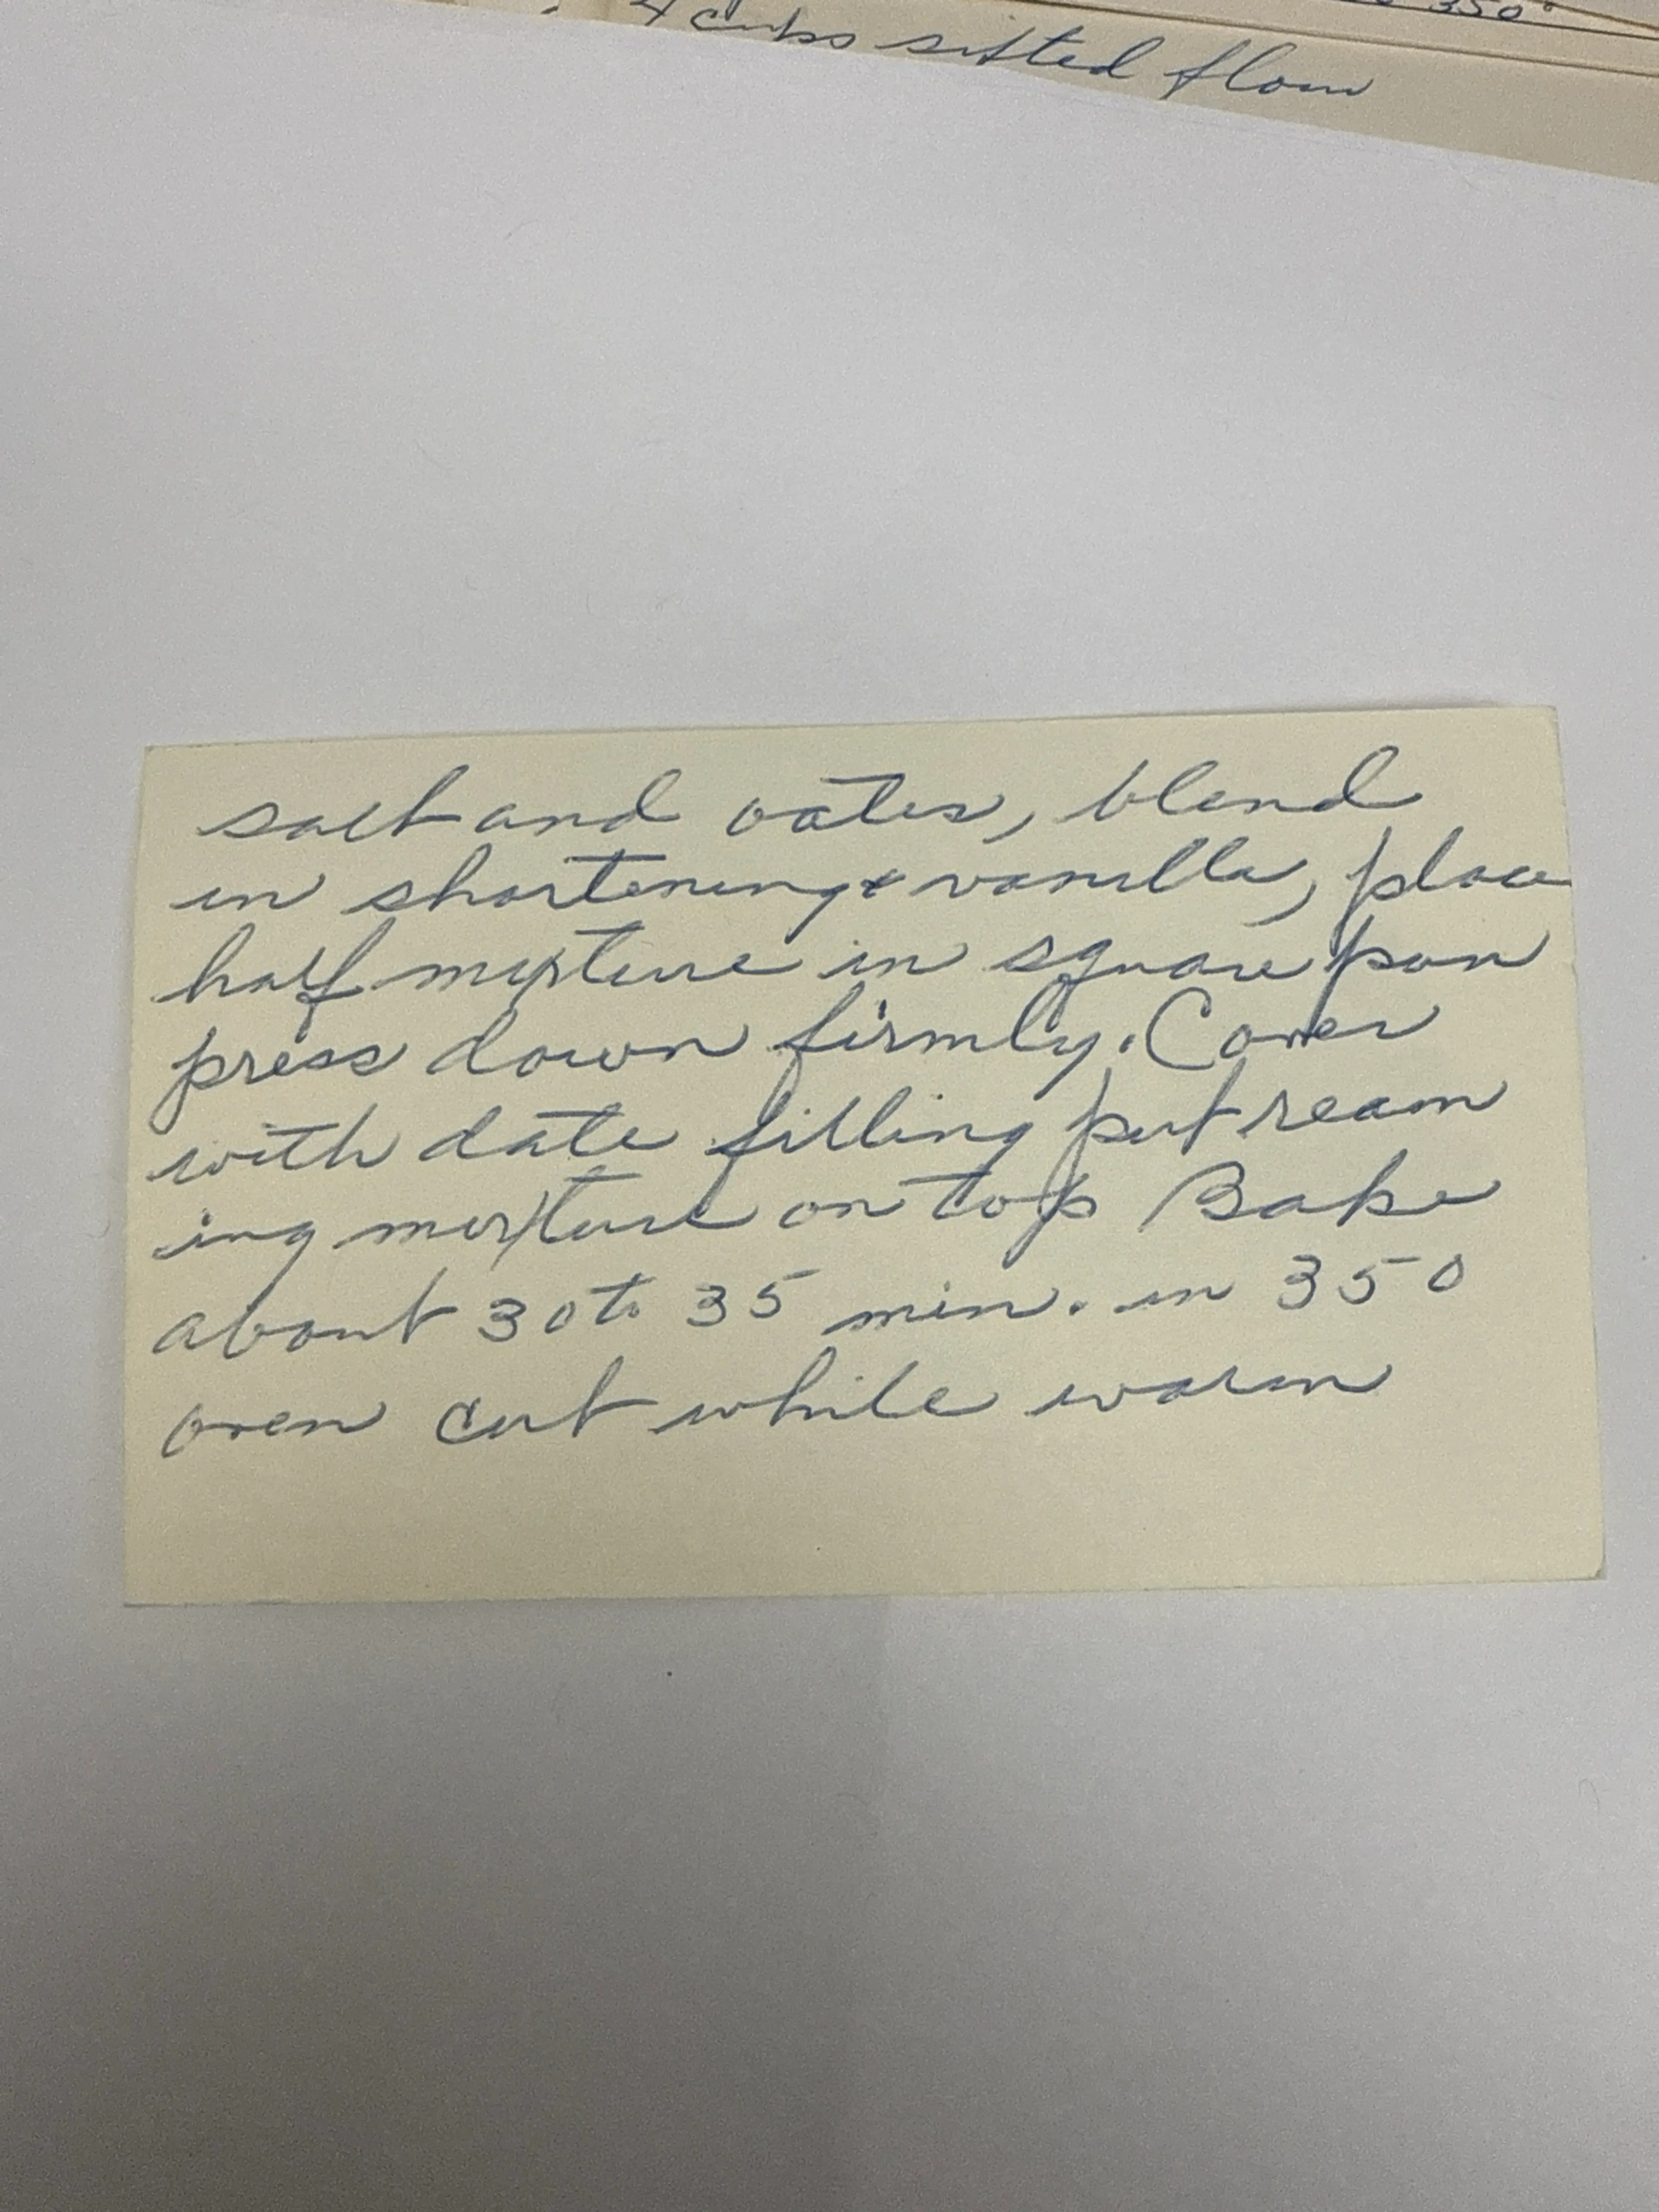 350°
4 cups sifted flour
salt and oates, blend
in shortening & vanilla, place
half mixture in square pan
press down firmly. Cover
with date filling put ream
ing mixture on top Bake
about 30 to 35 min. in 350
oven cut while warm